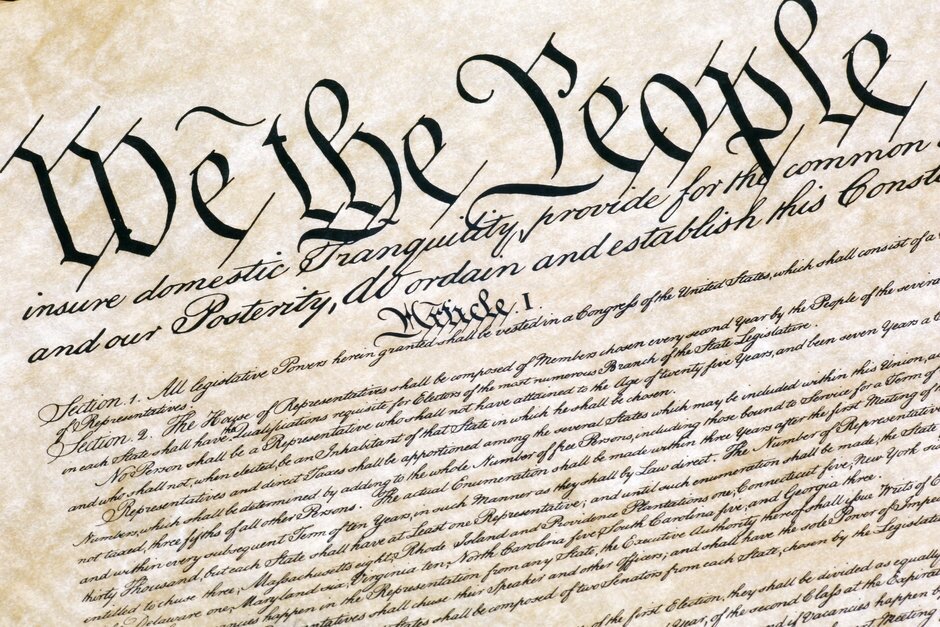 We the People
insure domestic Tranquility, provide for the common
and our Posterity, do ordain and establish this Const
Article I.
Section 1. All legislative Powers herein granted shall be vested in a Congress of the United States, which shall consist of a
of Representatives.
Section 2. The House of Representatives shall be composed of Members chosen every second Year by the People of the several
in each State shall have the Qualifications requisite for Electors of the most numerous Branch of the State Legislature.
No Person shall be a Representative who shall not have attained to the Age of twenty five Years, and been seven Years a
and who shall not, when elected, be an Inhabitant of that State in which he shall be chosen.
Representatives and direct Taxes shall be apportioned among the several States which may be included within this Union,
Numbers, which shall be determined by adding to the whole Number of free Persons, including those bound to Service for a Term of
not taxed, three fifths of all other Persons. The actual Enumeration shall be made within three Years after the first Meeting of
and within every subsequent Term of ten Years, in such Manner as they shall by Law direct. The Number of Representatives
thirty Thousand, but each State shall have at Least one Representative; and until such enumeration shall be made, the State
entitled to chuse three, Massachusetts eight, Rhode Island and Providence Plantations one, Connecticut five, New York six
Delaware one, Maryland six, Virginia ten, North Carolina five, South Carolina five, and Georgia three.
happen in the Representation from any State, the Executive Authority thereof shall issue Writs of
Representatives shall chuse their Speaker and other Officers; and shall have the sole Power of Impea
States shall be composed of two Senators from each State, chosen by the Legislature
of the first Election, they shall be divided as equally
Year, of the second Class at the Expirat
and if Vacancies happen by
Meeting of